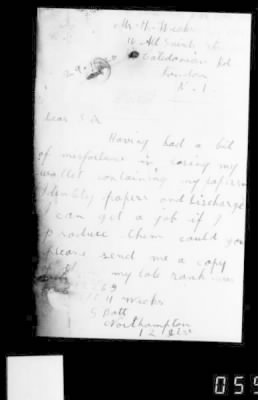 Mr. H. Weeks
14 All Saints St
Caledonian Rd
London
N. 1
Dear Sir
Having had a bit
of misfortune in losing my
wallet containing my papers
Identity papers and discharge
I can get a job if I
produce them could you
please send me a copy
my late rank was
H Weeks
5 Batt
Northampton
12 Div
059